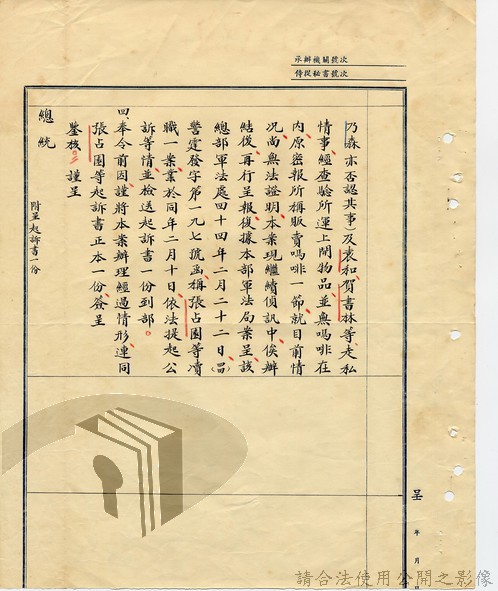 承辦機關號次
侍從秘書號次
乃森亦否認共事)及袁和、賀書林等走私
情事、經查驗所運上開物品、並無嗎啡在
內、原密報所稱販賣嗎啡一節、就目前情
況尚無法證明、本案現繼續偵訊中、俟辦
結後、再行呈報、復據本部軍法局案呈、該
總部軍法處四十四年二月二十二日(44)
警定發字第一九七號函稱張占園等瀆
職一案、業於同年二月十日依法提起公
訴等情、並檢送起訴書一份到部。
四、奉令前因、謹將本案辦理經過情形、連同
張占園等起訴書正本一份、簽呈
鑒核、謹呈
總統
附呈起訴書一份
呈
年
月
日
請合法使用公開之影像